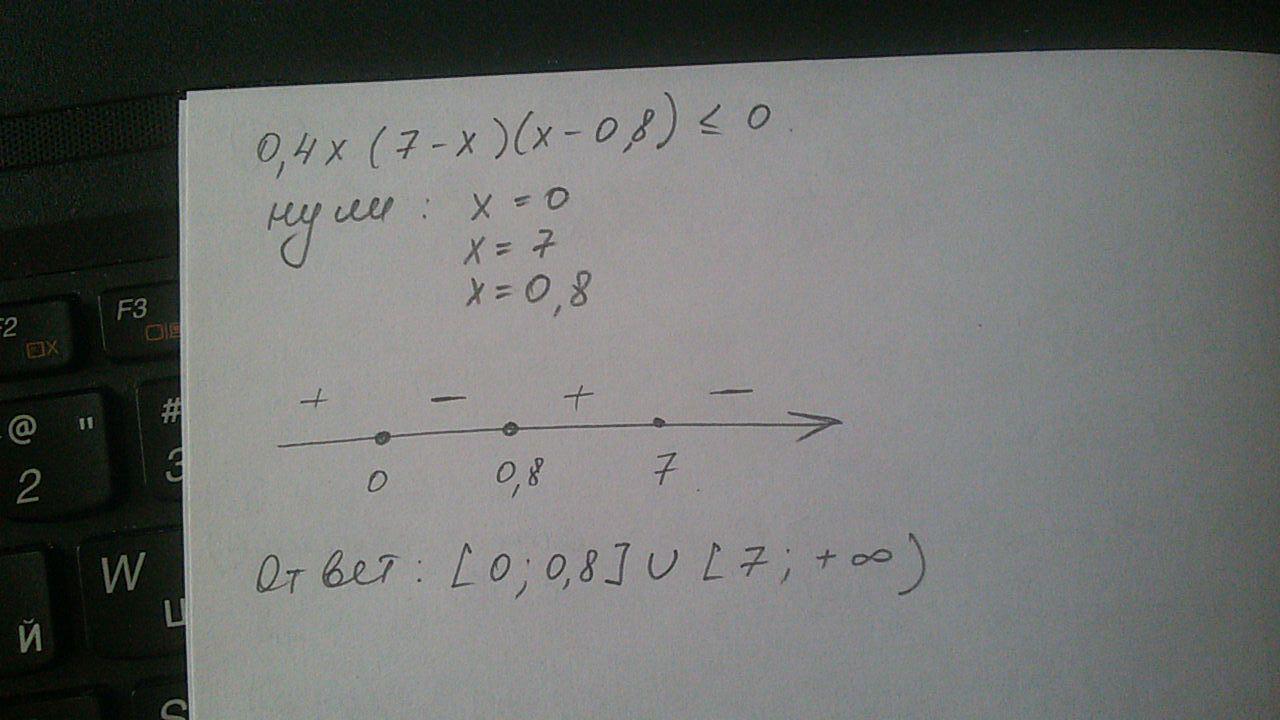 0,4x (7-x)(x-0,8) ≤ 0
нули: x = 0
x = 7
x = 0,8
+ − + −
0 0,8 7
Ответ: [0; 0,8] ∪ [7; +∞)
F2
F3
@ "
2
#
3
W
Й
S